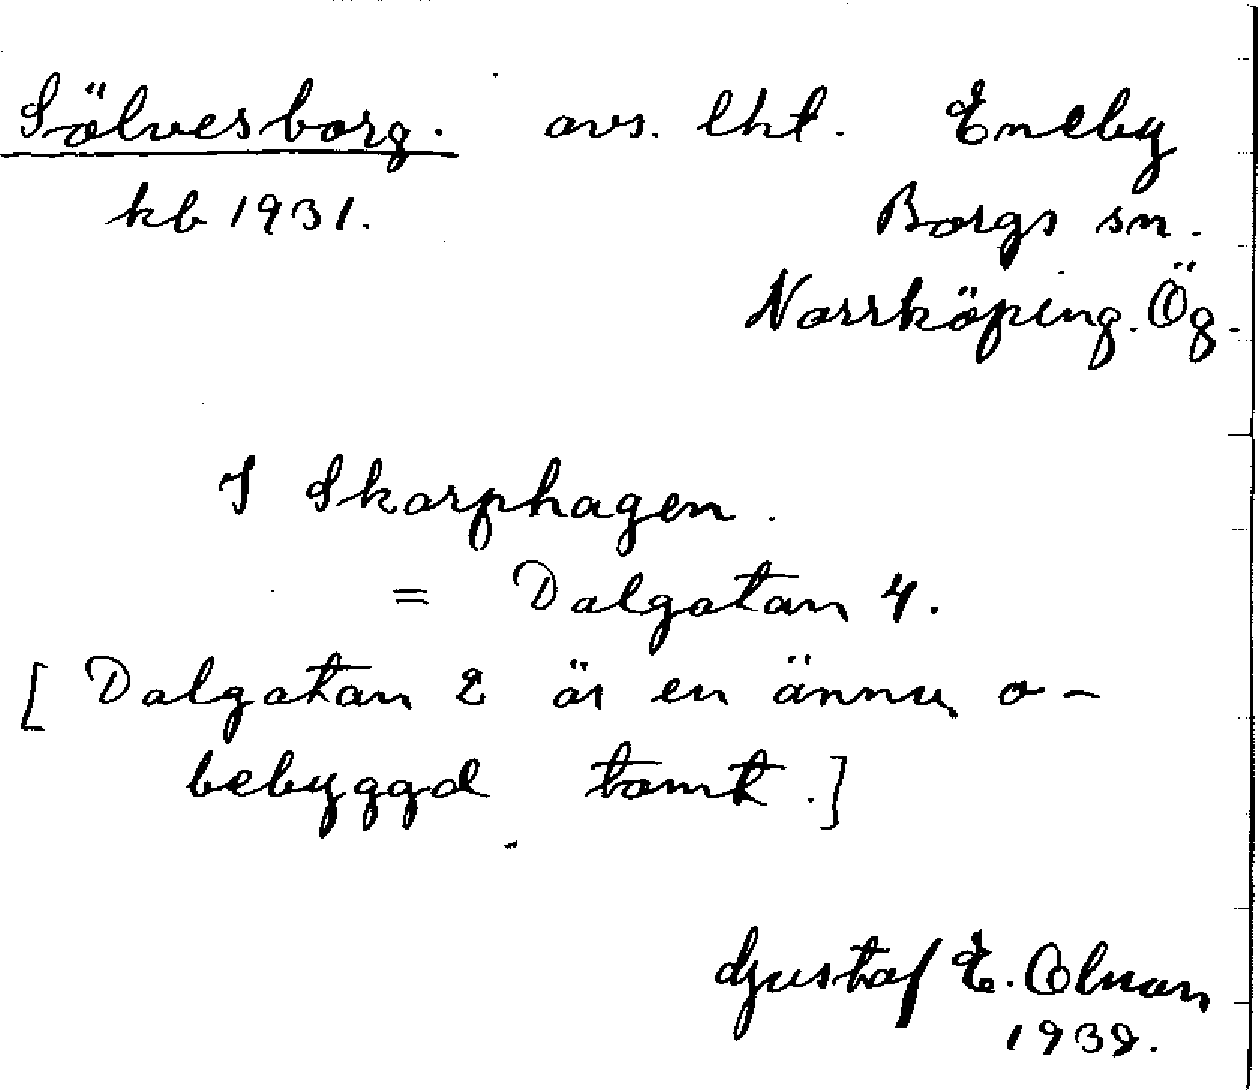 Sölvesborg. avs. lht. Eneby
kb 1931. Borgs sn.
Norrköping. Ög.
I Skarphagen.
= Dalgatan 4.
[ Dalgatan 2 är en ännu o-
bebyggd tomt.]
Gustaf E. Olman
1939.